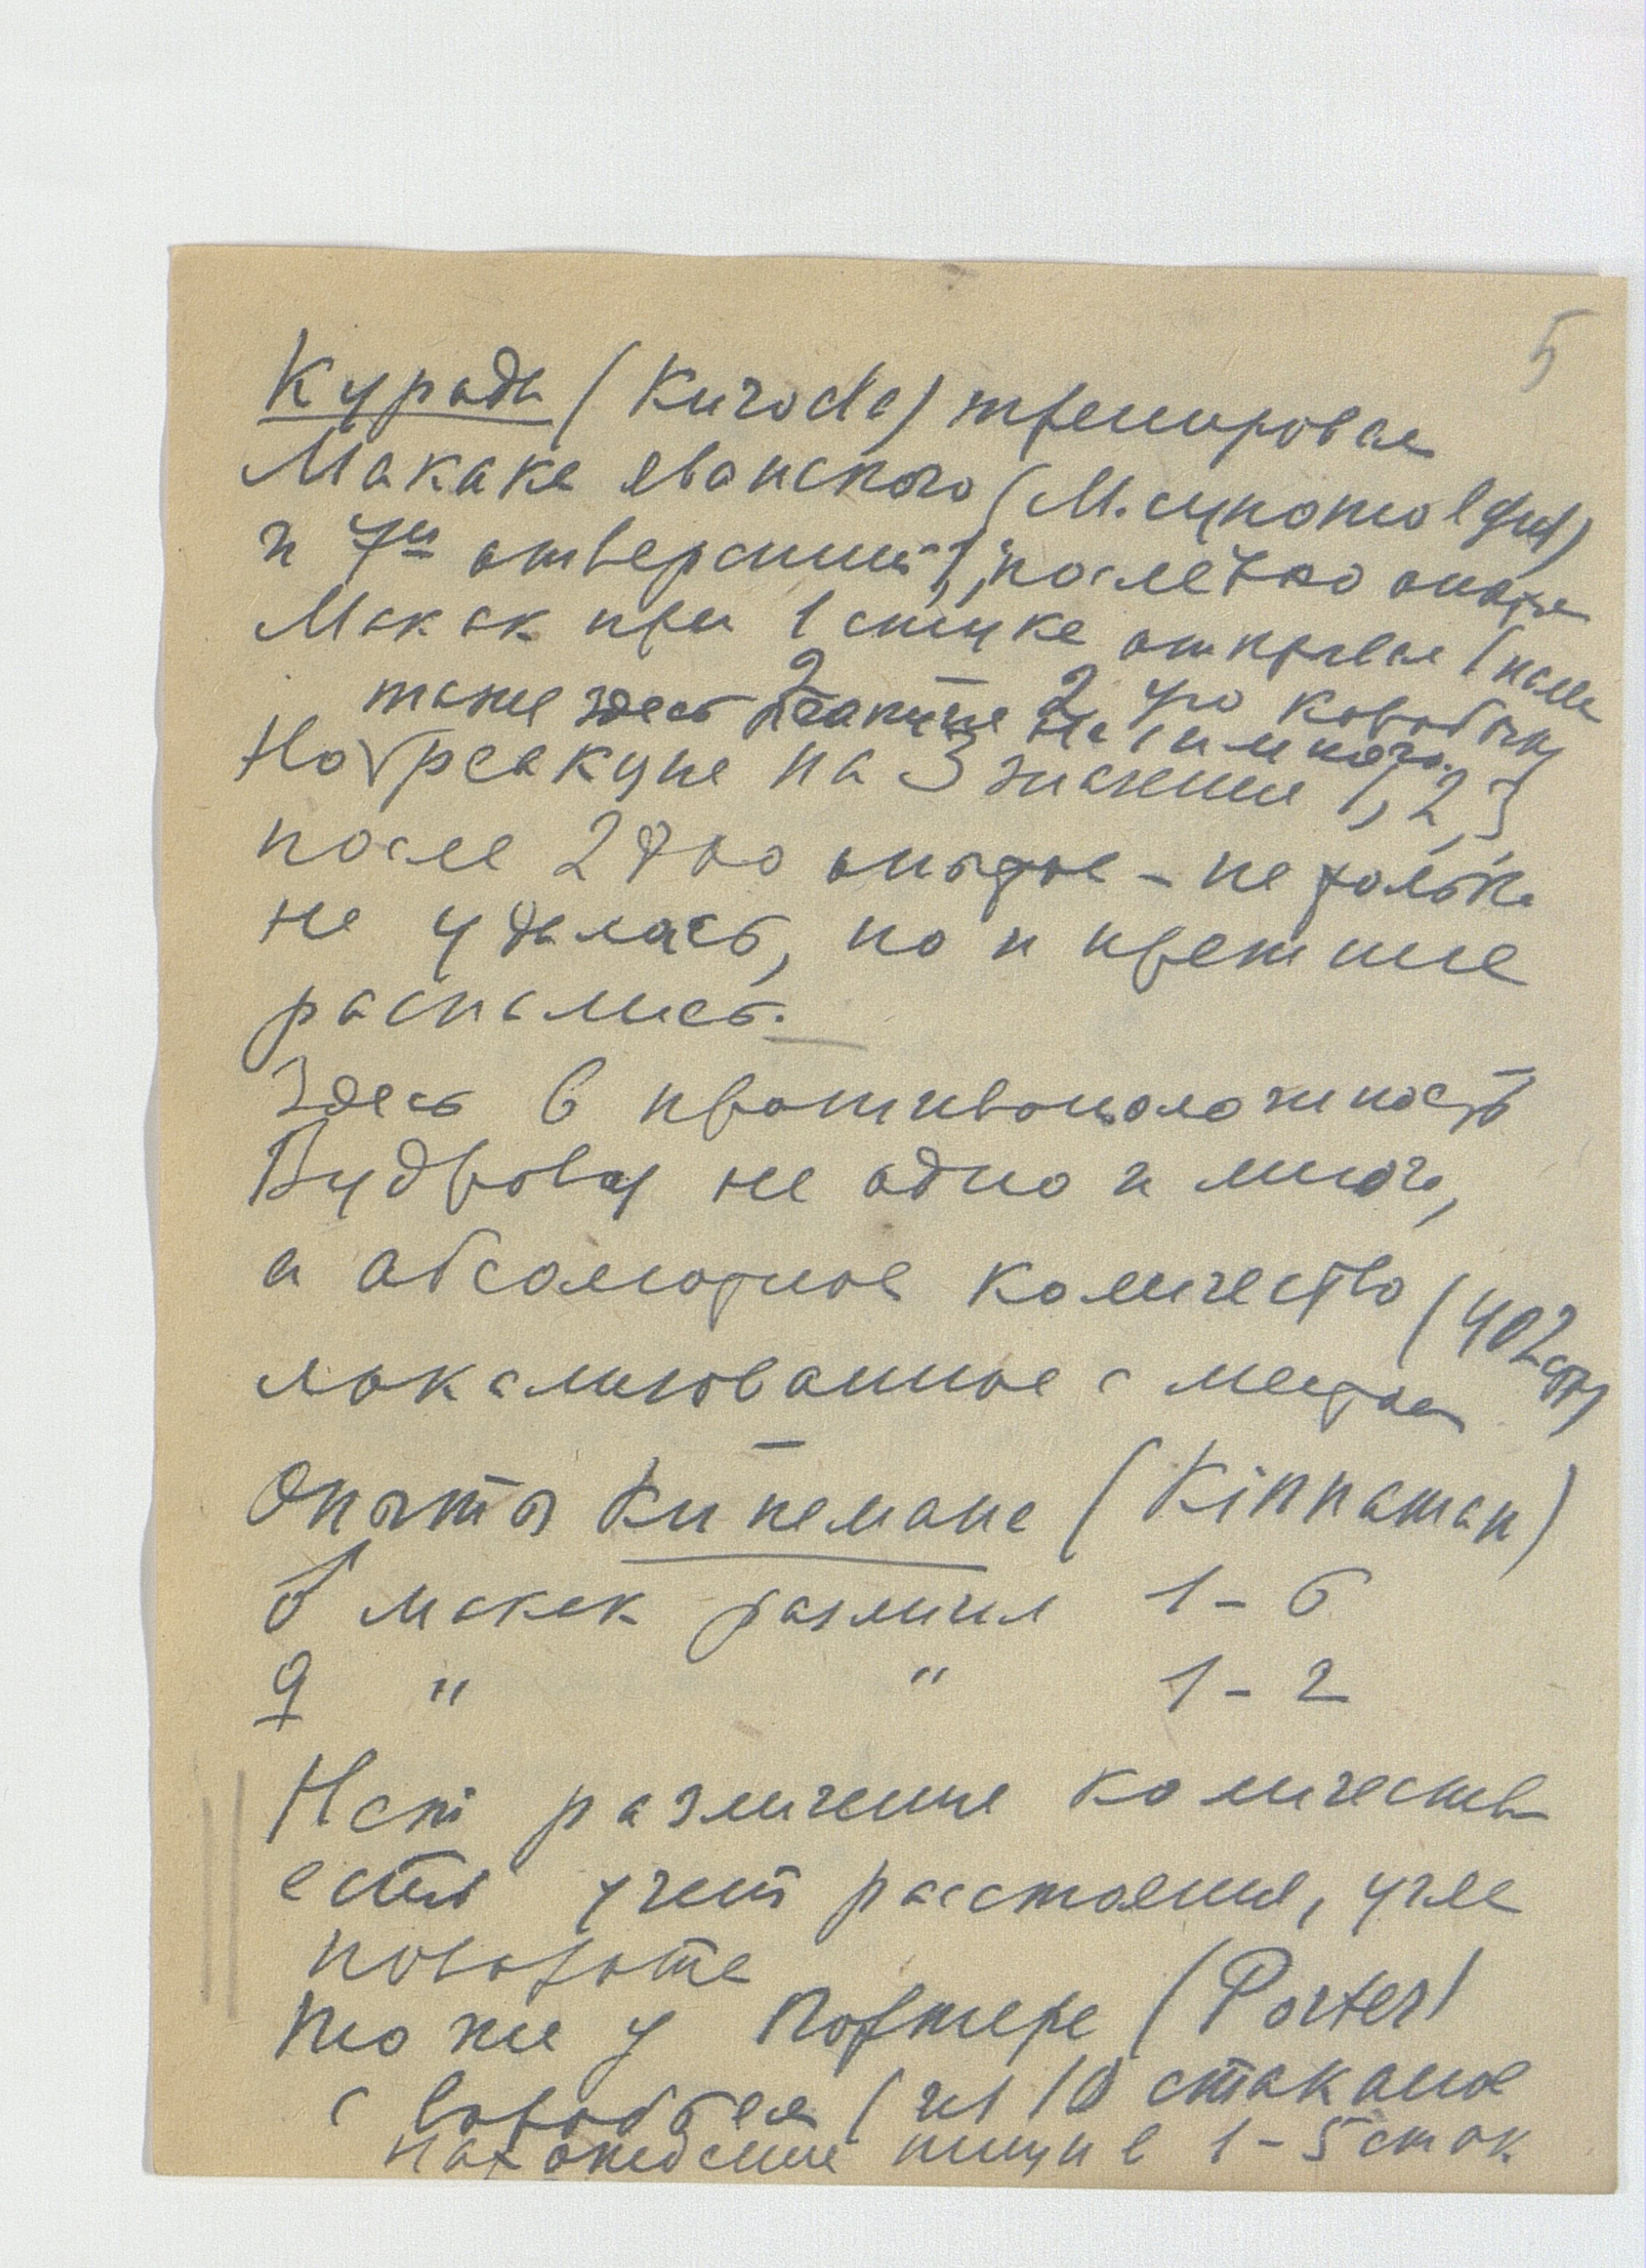 5
Курода (Kuroda) тренировал
Макака яванского (M. cynomolgus)
к 7ми отверстий, после 700 опытов
Макак при 1 стуке открывал 1
также здесь реакция на 1 и много.
Но реакция на 3 значения 1, 2, 3
после 2700 опытов – не только
не удалась, но и прежние
распались.
Здесь в противоположность
Вудрову не одно и много,
а абсолютное количество (402 стр)
локализованное с местом
Опыты Киннемана (Kinnaman)
♂ макак различил 1 – 6
♀ " " 1 – 2
Нет различения количеств
есть учет расстояния, угла
поворота
То же у Портера (Porter)
с воробьем (из 10 стаканов
нахождение пищи в 1 – 5 стак